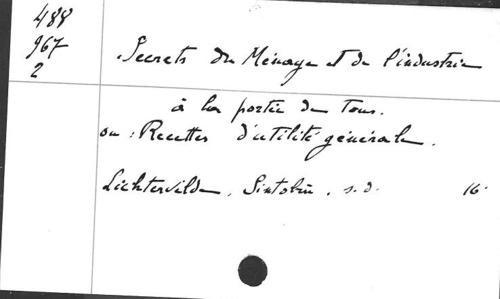 488
967
2
Secrets du Ménage et de l'industrie
à la portée de Tous.
ou : Recettes d'utilité générale.
Lichtervelde, Sintobin, s.d. 16°